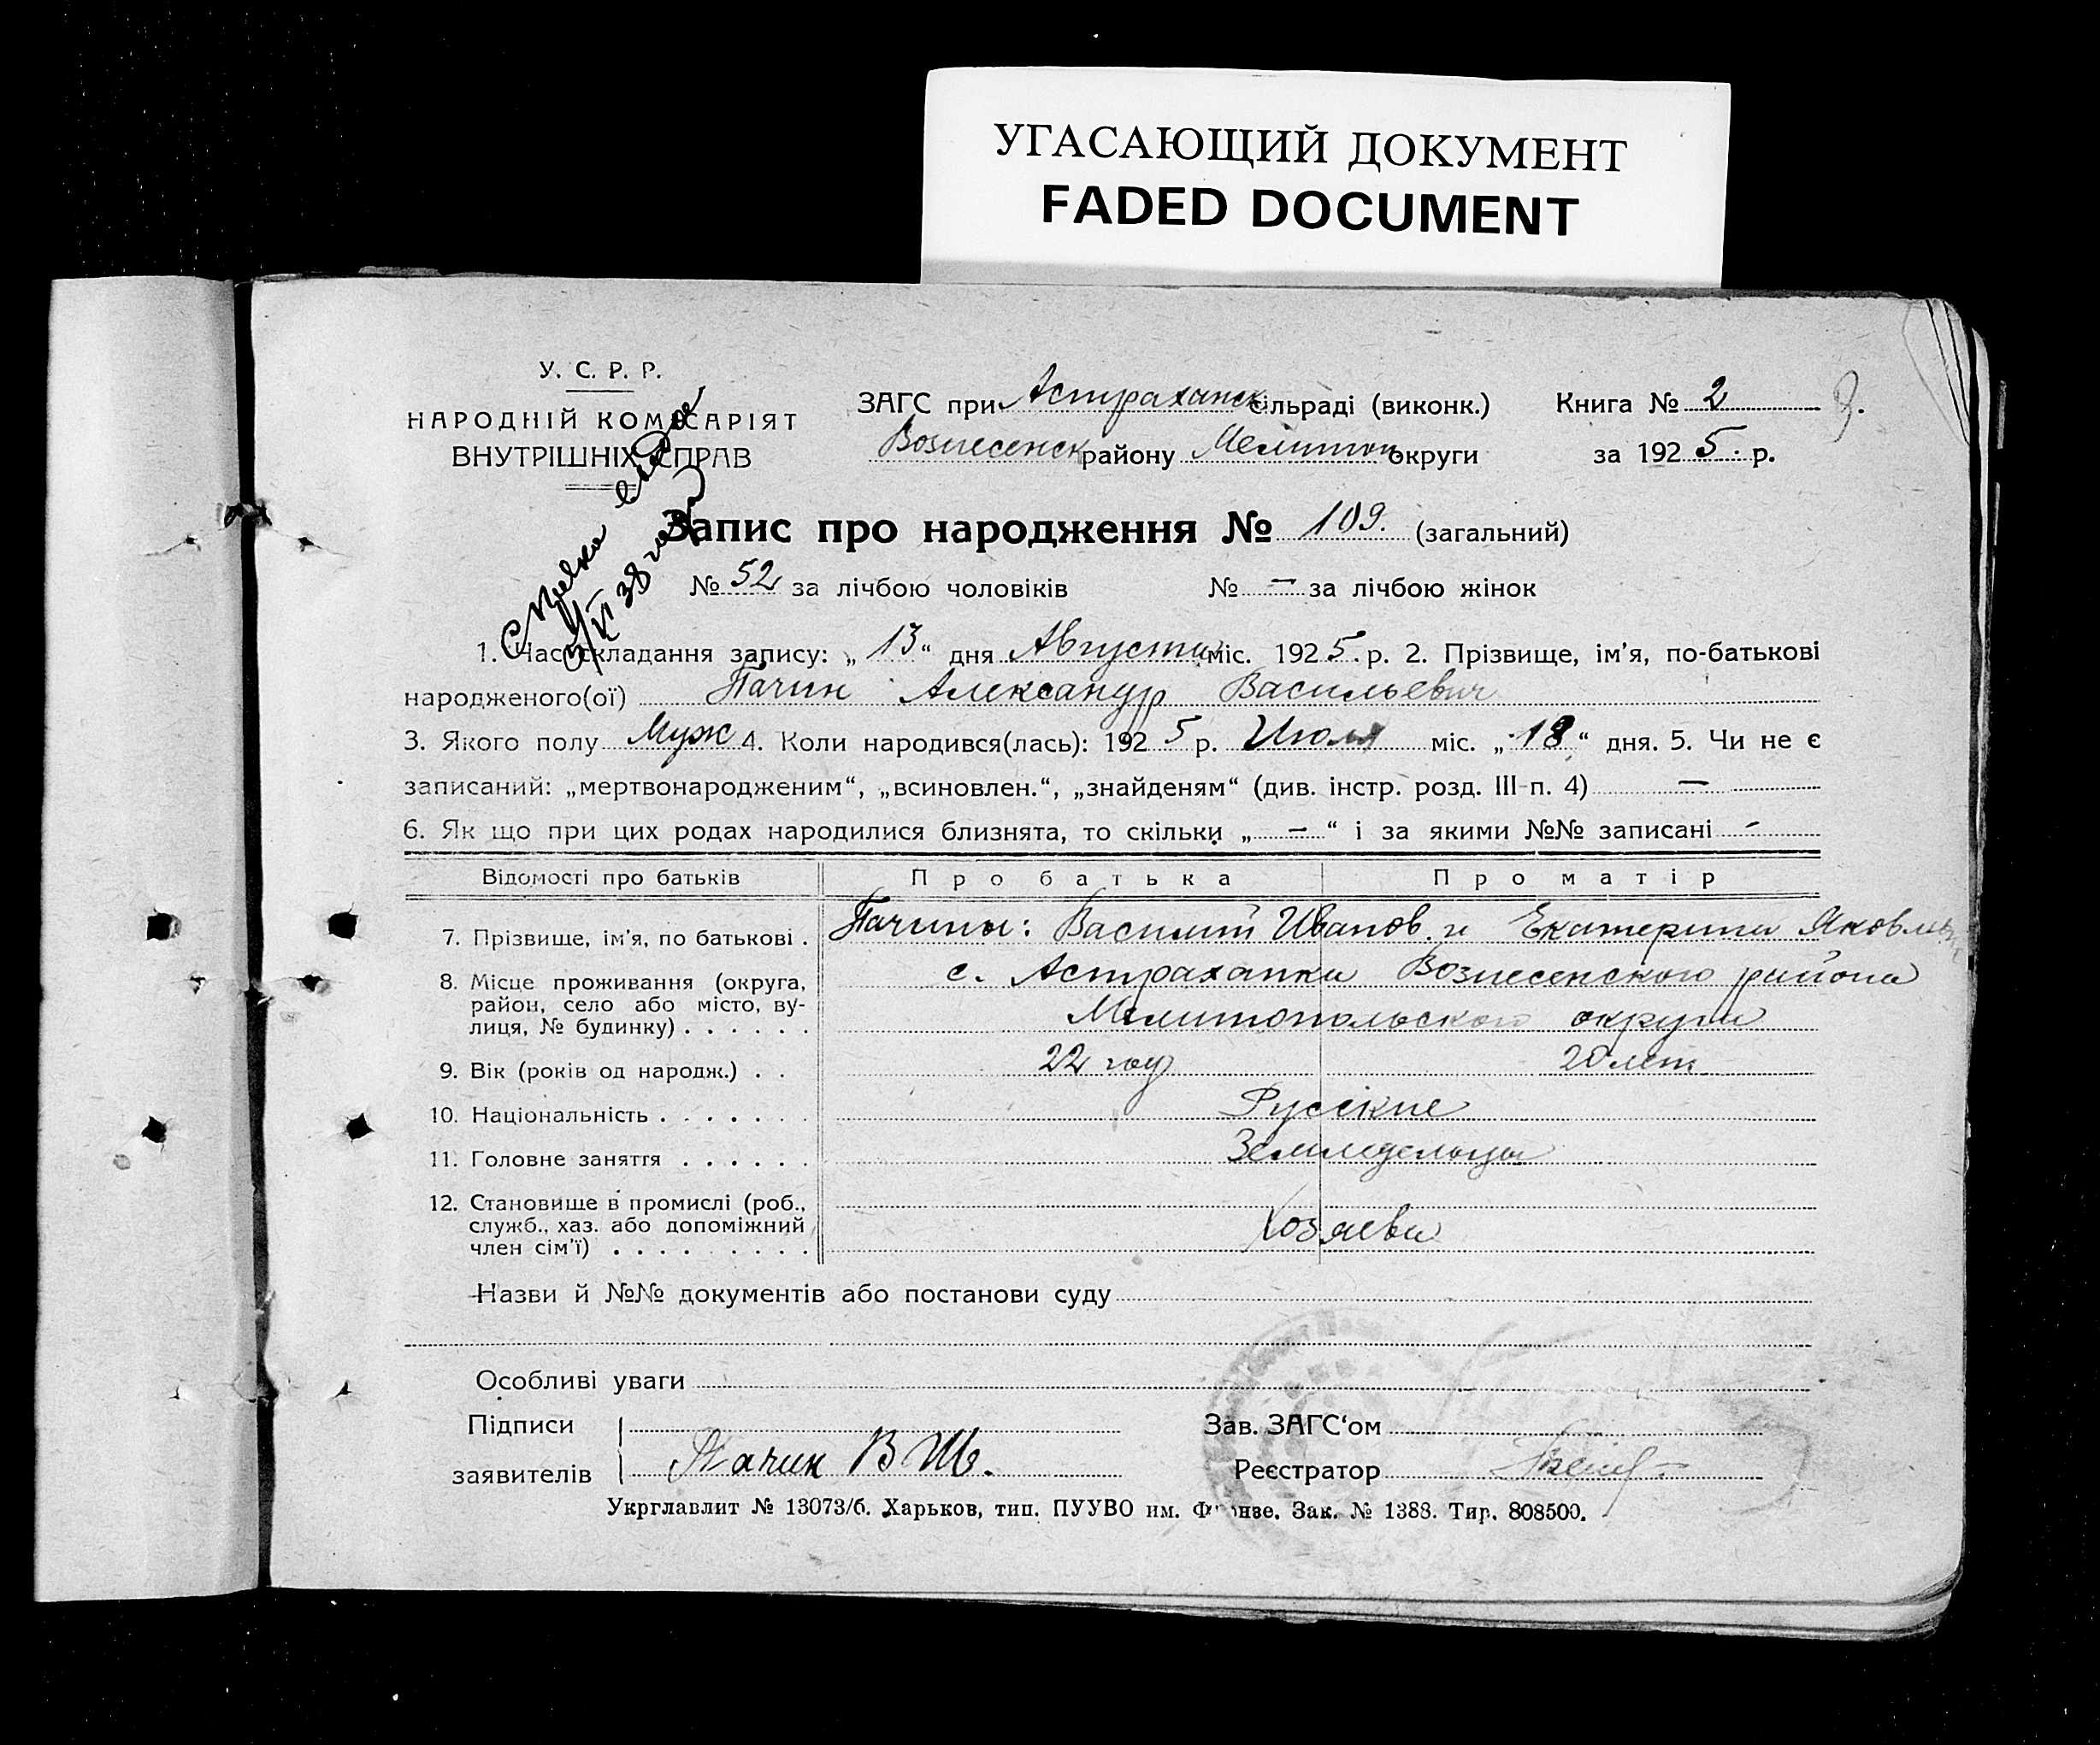 УГАСАЮЩИЙ ДОКУМЕНТ
FADED DOCUMENT
У. С. Р. Р.
НАРОДНІЙ КОМІСАРІЯТ
ВНУТРІШНІХ СПРАВ
ЗАГС при Астраханск сільраді (виконк.)
Вознесенск району Мелитоп округи
Книга № 2
за 1925. р.
Справка
Запис про народження № 109. (загальний)
№ 52 за лічбою чоловіків № — за лічбою жінок
1. Час складання запису: „13“ дня Августа міс. 1925. р. 2. Прізвище, ім'я, по-батькові
народженого(ої) Пачин Александр Васильевич
3. Якого полу Муж 4. Коли народився(лась): 1925 р. Июля міс. „18“ дня. 5. Чи не є
записаний: „мертвонародженим“, „всиновлен.“, „знайденям“ (див. інстр. розд. III-п. 4) —
6. Як що при цих родах народилися близнята, то скільки „—“ і за якими №№ записані -
Відомості про батьків Про батька Про матір
7. Прізвище, ім'я, по батькові . Пачины: Василий Иванов. и Екатерина Яковлев
8. Місце проживання (округа, с. Астраханка Вознесенского района
район, село або місто, ву-
лиця, № будинку) . . . . . . Мелитопольского округи
9. Вік (років од народж.) . . 22 год 20 лет
10. Національність . . . . . . . Русские
11. Головне заняття . . . . . . Земледельцы
12. Становище в промислі (роб.,
служб., хаз. або допоміжний
член сім'ї) . . . . . . . . . Хозяева
Назви й №№ документів або постанови суду
Особливі уваги
Підписи
заявителів Пачин В И.
Зав. ЗАГС‘ом
Реєстратор
Укрглавлит № 13073/б. Харьков, тип. ПУУВО им. Фрунзе. Зак. № 1388. Тир. 808500.